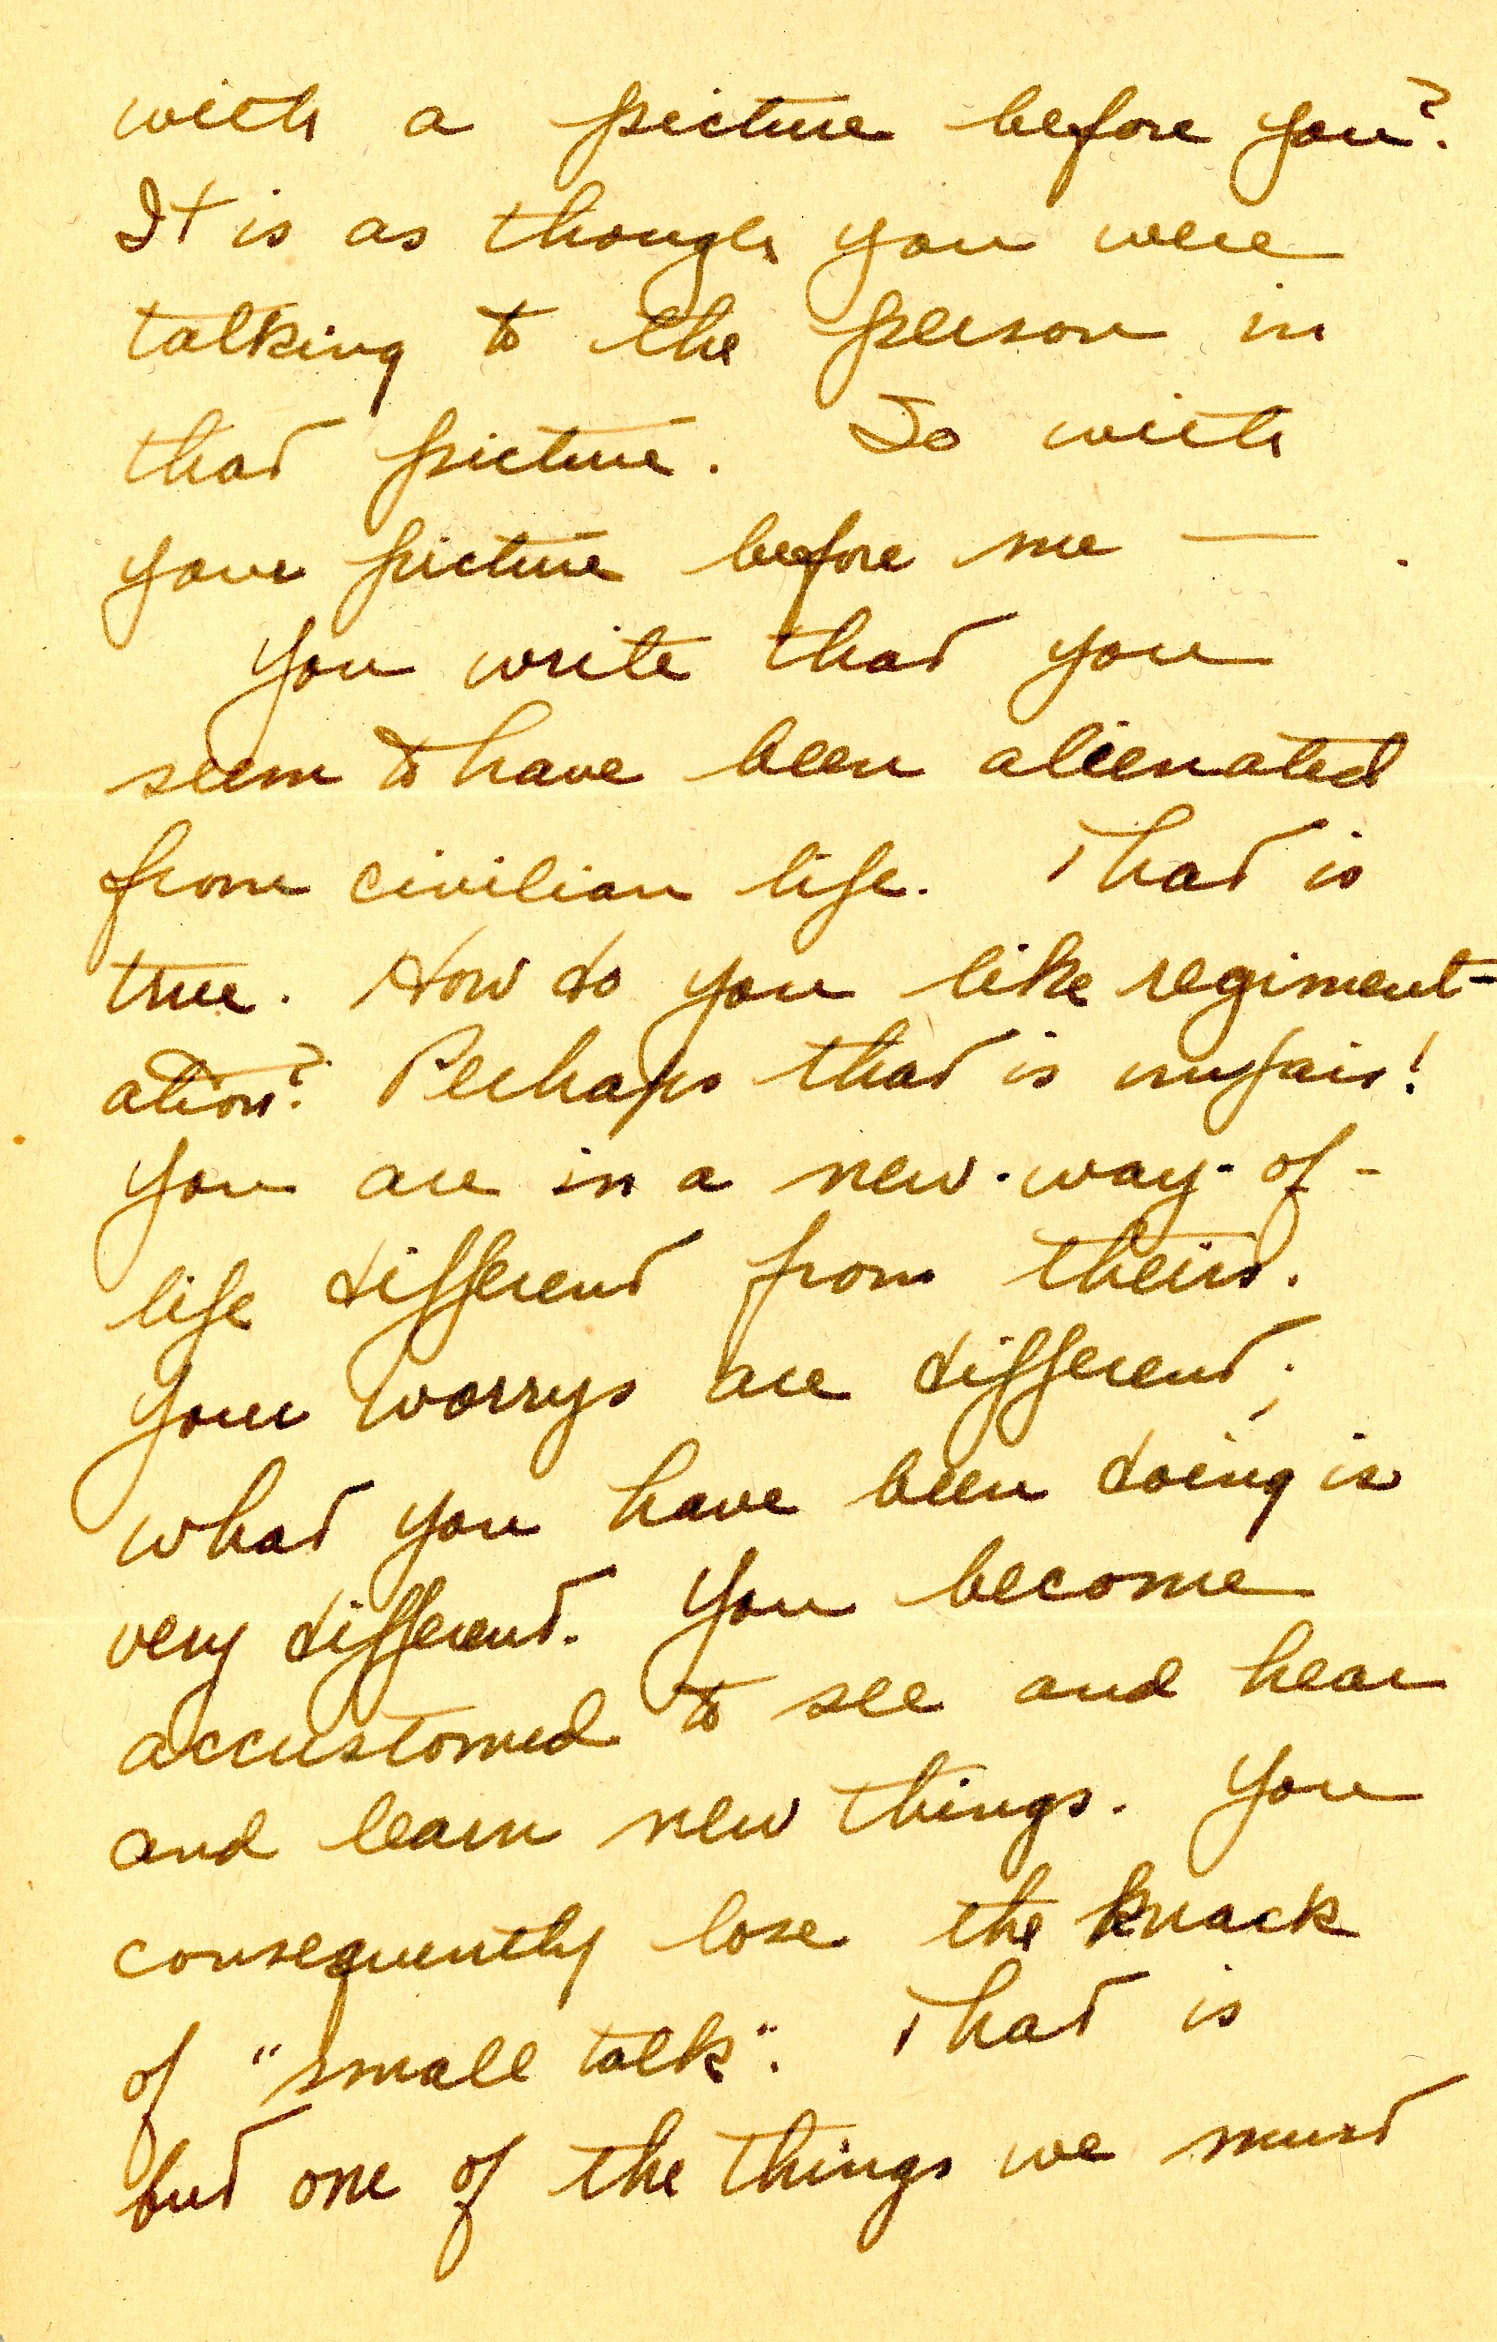 with a picture before you?
It is as though you were
talking to the person in
that picture. So with
your picture before me —
You write that you
seem to have been alienated
from civilian life. That is
true. How do you like regiment-
ation? Perhaps that is unfair!
You are in a new-way-of-
life different from theirs.
Your worrys are different;
what you have been doing is
very different. You become
accustomed to see and hear
and learn new things. You
consequently lose the knack
of "small talk". That is
but one of the things we must